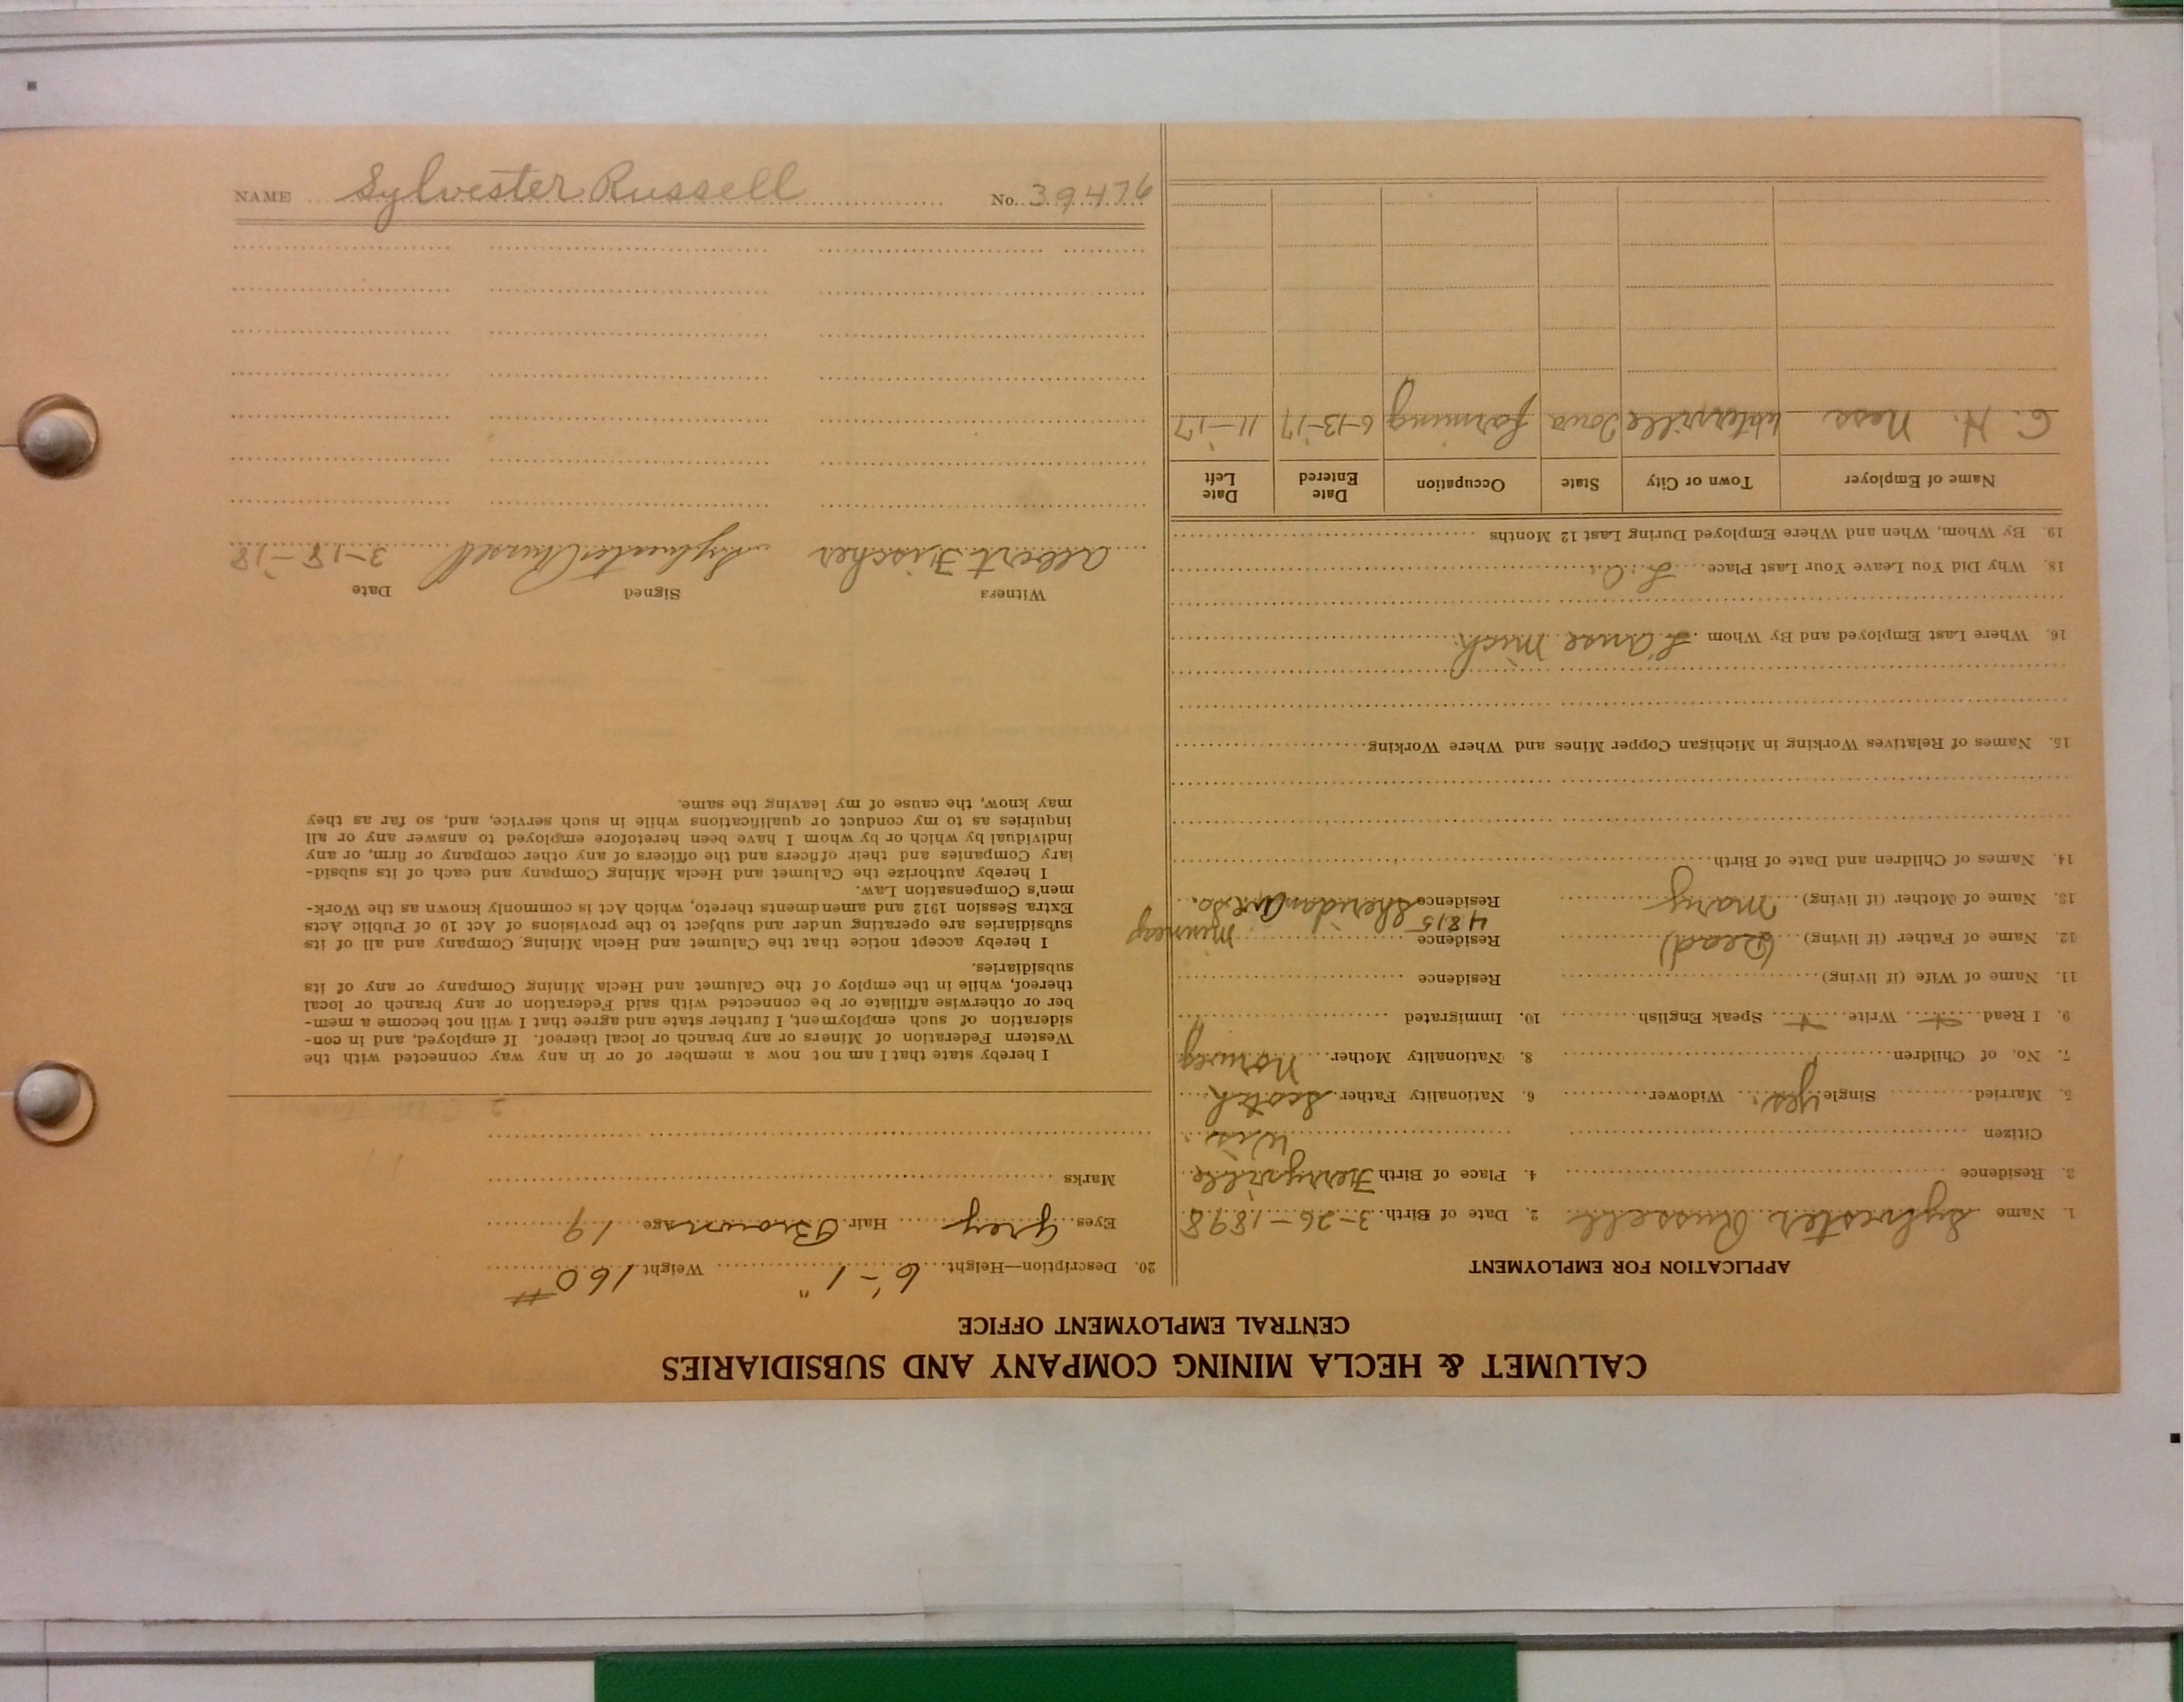 CALUMET & HECLA MINING COMPANY AND SUBSIDIARIES
CENTRAL EMPLOYMENT OFFICE
APPLICATION FOR EMPLOYMENT
1. Name Sylvester Russell 2. Date of Birth 3-26-1898
3. Residence 4. Place of Birth Ferryville
Citizen Wis.
5. Married Single yes. Widower 6. Nationality Father Scotch
7. No. of Children 8. Nationality Mother Norweg
9. I Read Write Speak English 10. Immigrated
11. Name of Wife (if living) Residence
12. Name of Father (if living) (Dead) Residence
13. Name of Mother (if living) Mary Residence 4815 Sheridan Ave So. Minneap
14. Names of Children and Date of Birth
15. Names of Relatives Working in Michigan Copper Mines and Where Working
16. Where Last Employed and By Whom L'Anse Mich.
18. Why Did You Leave Your Last Place
19. By Whom, When and Where Employed During Last 12 Months
Name of Employer Town or City State Occupation Date Entered Date Left
C. H. Ness Waterville Iowa farming 6-13-'17 11-'17
20. Description—Height 6'-1" Weight 160 #
Eyes Grey Hair Brown Age 19
Marks
I hereby state that I am not now a member of or in any way connected with the
Western Federation of Miners or any branch or local thereof. If employed, and in con-
sideration of such employment, I further state and agree that I will not become a mem-
ber or otherwise affiliate or be connected with said Federation or any branch or local
thereof, while in the employ of the Calumet and Hecla Mining Company or any of its
subsidiaries.
I hereby accept notice that the Calumet and Hecla Mining Company and all of its
subsidiaries are operating under and subject to the provisions of Act 10 of Public Acts
Extra Session 1912 and amendments thereto, which Act is commonly known as the Work-
men's Compensation Law.
I hereby authorize the Calumet and Hecla Mining Company and each of its subsid-
iary Companies and their officers and the officers of any other company or firm, or any
individual by which or by whom I have been heretofore employed to answer any or all
inquiries as to my conduct or qualifications while in such service, and, so far as they
may know, the cause of my leaving the same.
Witness Signed Date
Albert Fischer Sylvester Russell 3-18-'18
NAME Sylvester Russell No. 39476